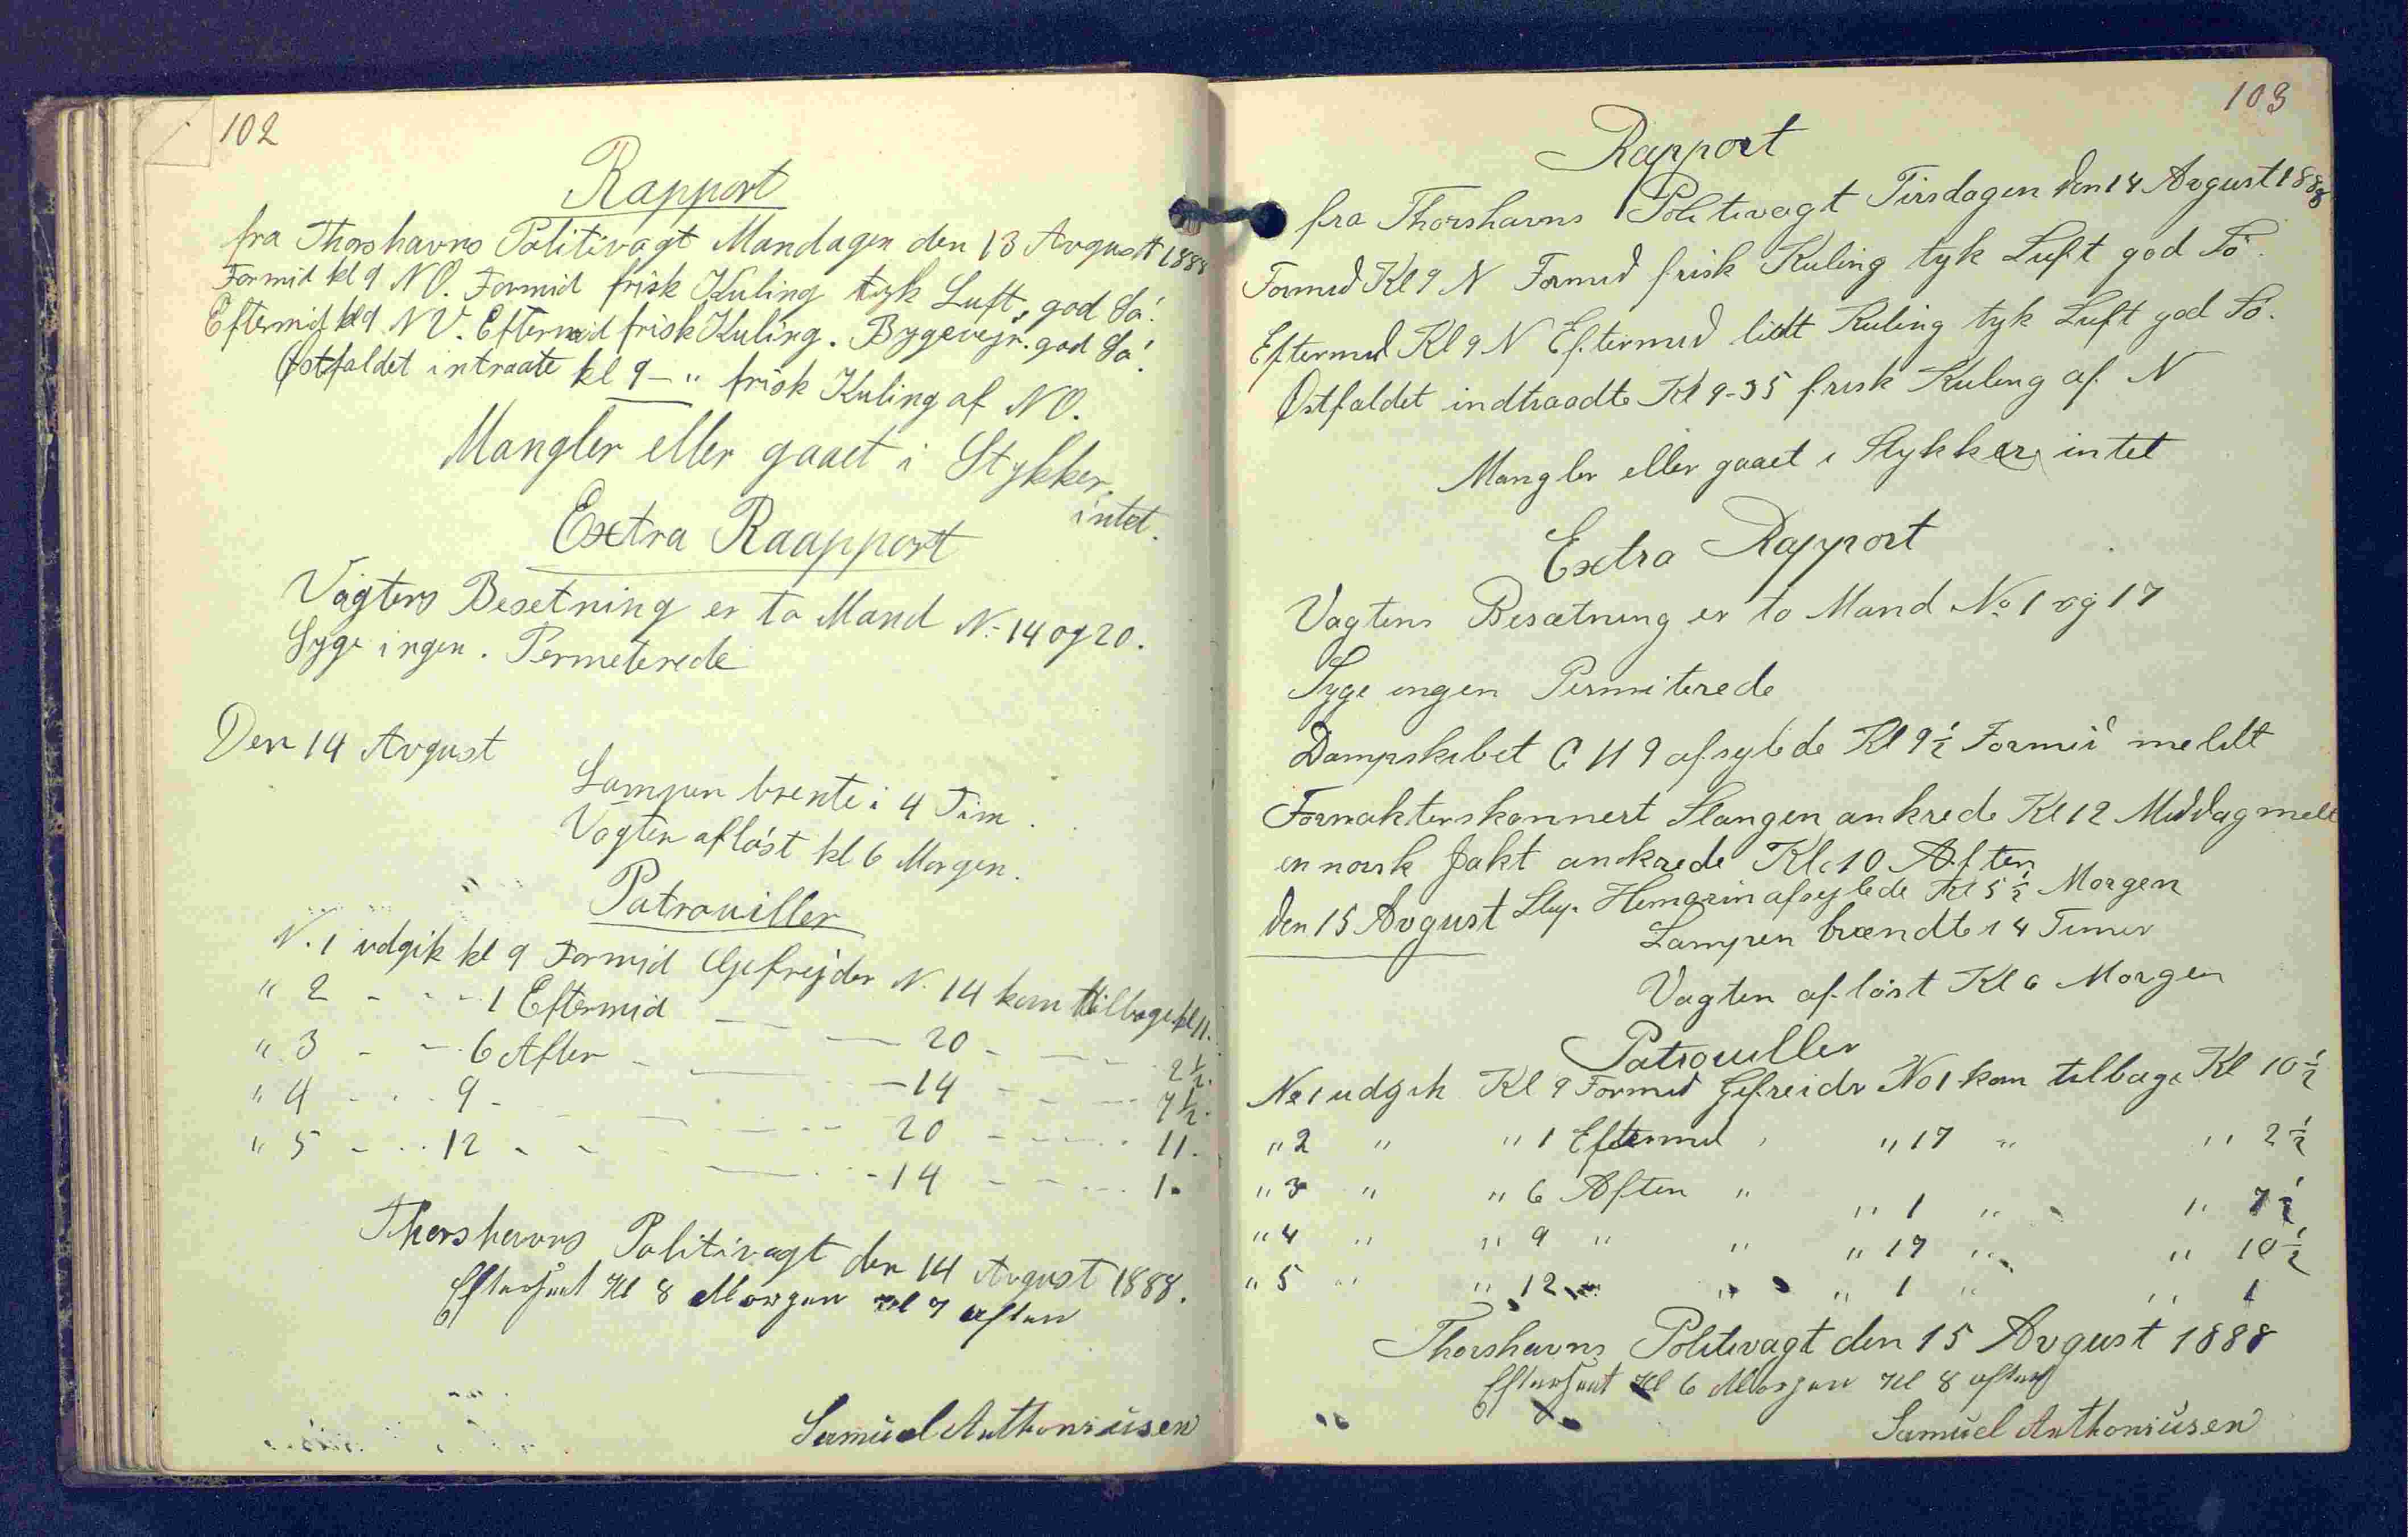 102
Rapport
fra Thorshavns Politivagt Mandagen den 13 Avgust 1888
Formid kl 9 NO. Formid frisk Kuling tyk Luft, god Sø.
Eftermid kl 9 NV. Eftermid frisk Kuling. Bygevejr. god Sø.
Østfaldet intraate kl 9 – " frisk Kuling af NO.
Mangler eller gaaet i Stykker.
intet.
Extra Raapport
Vagtens Besetning er to Mand N. 14 og 20.
Syge ingen. Permeterede
Den 14 Avgust
Lampen brente i 4 Tim.
Vagten afløst kl 6 Morgen.
Patrouiller
N. 1 udgik kl 9 Formid Gefrejder N. 14 kom tilbage kl 11.
" 2 - - - 1 Eftermid — — 20 - — - 2½.
" 3 - - 6 Aften - — - 14 - - - 7½.
" 4 - - - 9 - — - 20 - - - 11.
" 5 - - - 12 - - — - 14 - - - 1.
Thorshavns Politivagt den 14 Avgust 1888.
Efterseet Kl 8 Morgen Kl 7 aften
Samuel Anthoniusen
103
Rapport
fra Thorshavns Politivagt Tirsdagen den 14 Avgust 1888
Formid Kl 9 N Formid frisk Kuling tyk Luft god Sø.
Eftermid Kl 9 N Eftermid lidt Kuling tyk Luft god Sø.
Østfaldet indtraadte Kl 9-35 frisk Kuling af N
Mangler eller gaaet i Stykker intet
Extra Rapport
Vagtens Besætning er to Mand No 1 og 17
Syge ingen Permiterede
Dampskibet afsylede Kl 9½ Formid meldt
Slangen ankrede Kl 12 Middag meldt
en norsk Jakt ankrede Kl. 10 Aften
den 15 Avgust Slup. afsylede Kl 5½ Morgen
Lampen brændte i 4 Timer
Vagten afløst Kl 6 Morgen
Patrouiller
No 1 udgik Kl 9 Formid Gefreider No 1 kom tilbage Kl 10½
" 2 " " 1 Eftermid " " 17 " " 2½
" 3 " " 6 Aften " " 1 " " 7½
" 4 " " 9 " " " 17 " " 10½
" 5 " " 12 " " " 1 " " 1
Thorshavns Politivagt den 15 Avgust 1888
Efterseet Kl 6 Morgen Kl 8 aften
Samuel Anthoniusen